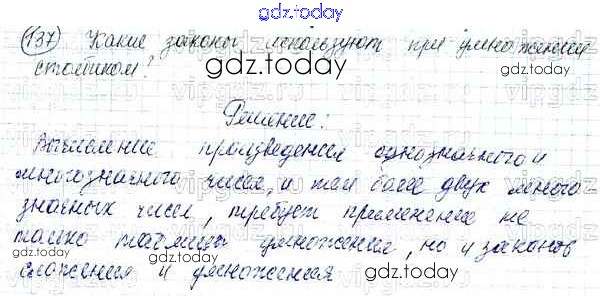 gdz.today
137) Какие законы используют при умножении
столбиком?
gdz.today
gdz.today
Решение:
Вычисление произведения однозначного и
gdz.today
многозначного чисел, и тем более двух много
значных чисел, требует применение не
gdz.today
только таблицы умножения, но и законов
gdz.today
сложения и умножения
gdz.today